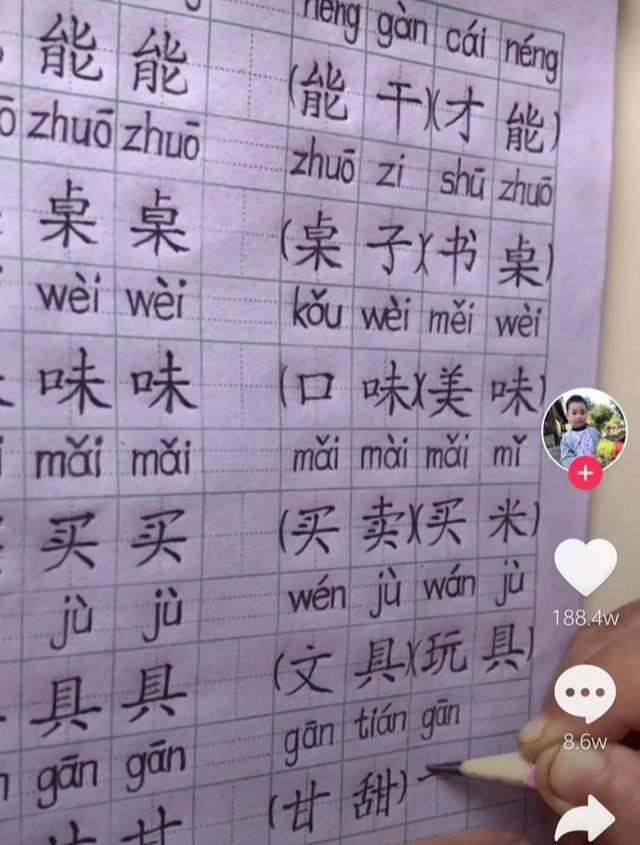 néng gàn cái néng
能 能 (能 干)(才 能)
zhuō zhuō zhuō zi shū zhuō
桌 桌 (桌 子)(书 桌)
wèi wèi kǒu wèi měi wèi
味 味 (口 味)(美 味)
mǎi mǎi mǎi mài mǎi mǐ
买 买 (买 卖)(买 米)
jù jù wén jù wán jù
具 具 (文 具)(玩 具)
gān gān gān tián gān
甘 (甘 甜)
188.4w
8.6w